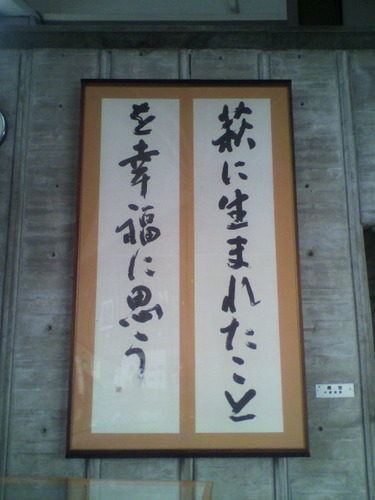 萩に生まれたこと
を幸福に思う